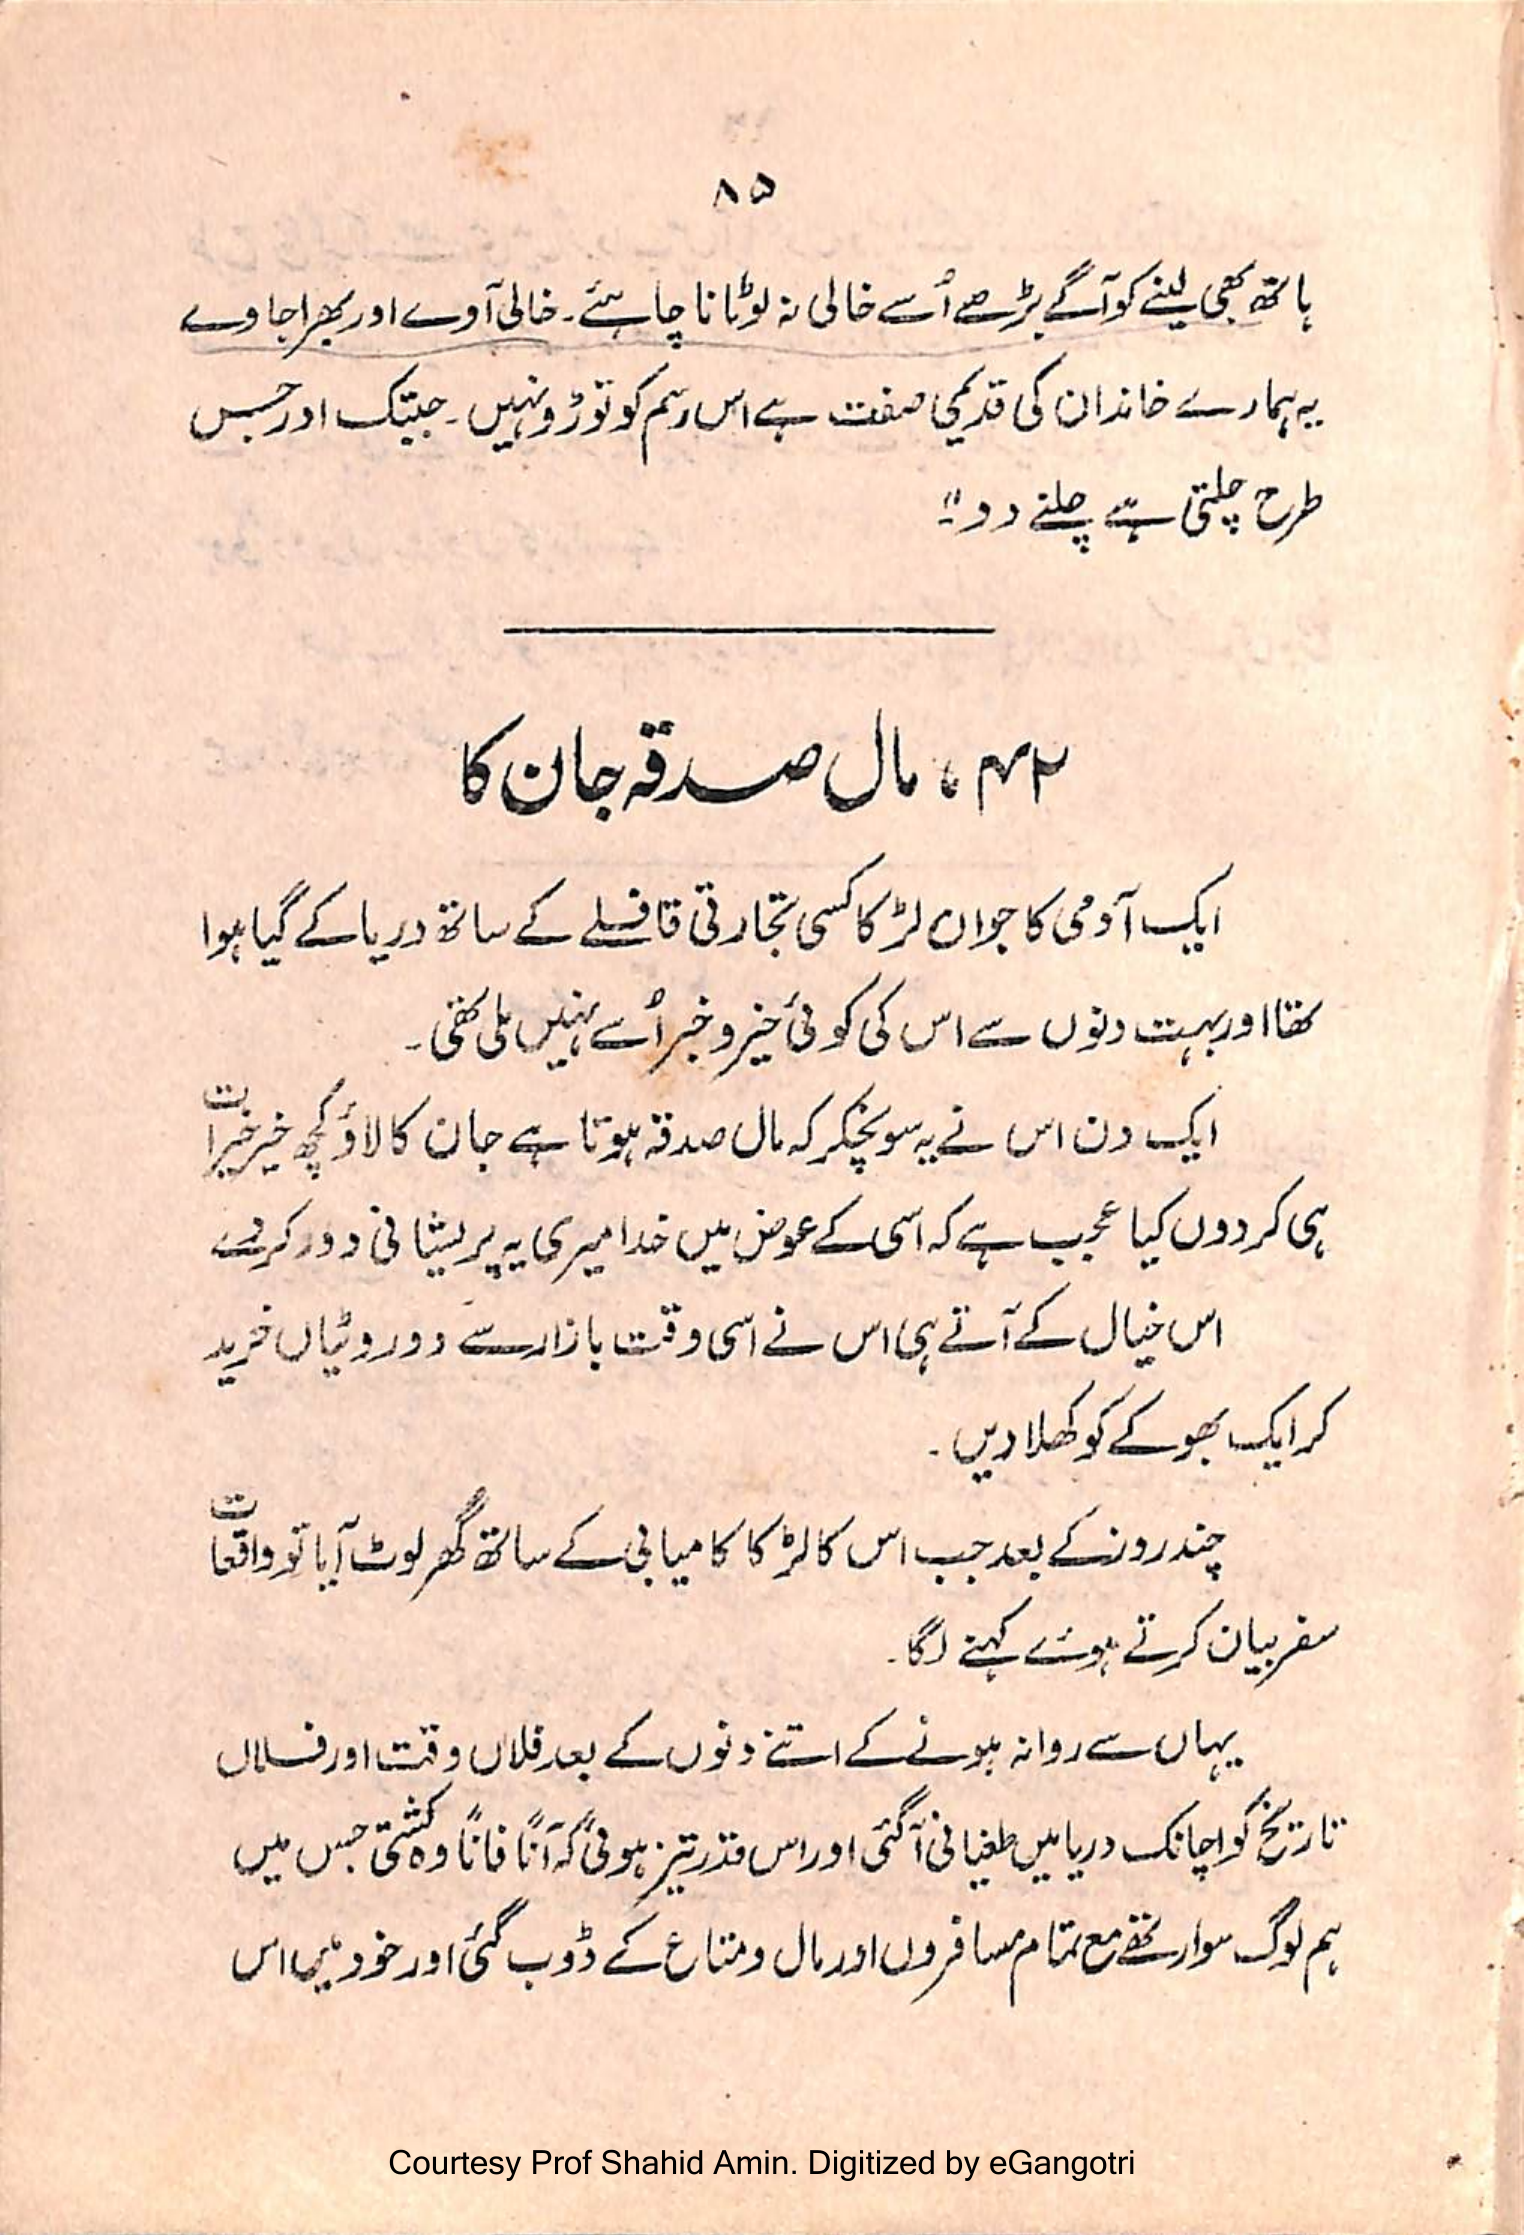 ۸۵
ہاتھ بھی لینے کو آگے بڑھے اُسے خالی نہ لوٹانا چاہئے۔ خالی آوے اور بھرا جاوے
یہ ہمارے خاندان کی قدیمی صفت ہے اس رسم کو توڑو نہیں۔ جبتک اور جس
طرح چلتی ہے چلنے دو"۔
۴۲، مال صدقہ جان کا
ایک آدمی کا جوان لڑکا کسی تجارتی قافلے کے ساتھ دریا کے گیا ہوا
تھا اور بہت دنوں سے اس کی کوئی خیر و خبر اُسے نہیں ملی تھی۔
ایک دن اس نے یہ سوچکر کہ مال صدقہ ہوتا ہے جان کا لاؤ کچھ خیر خیرات
ہی کر دوں کیا عجب ہے کہ اسی کے عوض میں خدا میری یہ پریشانی دور کر دے
اس خیال کے آتے ہی اس نے اسی وقت بازار سے دو روٹیاں خرید
کر ایک بھوکے کو کھلا دیں۔
چند روز کے بعد جب اس کا لڑکا کامیابی کے ساتھ گھر لوٹ آیا تو واقعات
سفر بیان کرتے ہوئے کہنے لگا۔
یہاں سے روانہ ہونے کے اتنے دنوں کے بعد فلاں وقت اور فلاں
تاریخ کو اچانک دریا میں طغیانی آگئی اور اس قدر تیز ہوئی کہ آناً فاناً وہ کشتی جس میں
ہم لوگ سوار تھے مع تمام مسافروں اور مال و متاع کے ڈوب گئی اور خود میں اس
Courtesy Prof Shahid Amin. Digitized by eGangotri